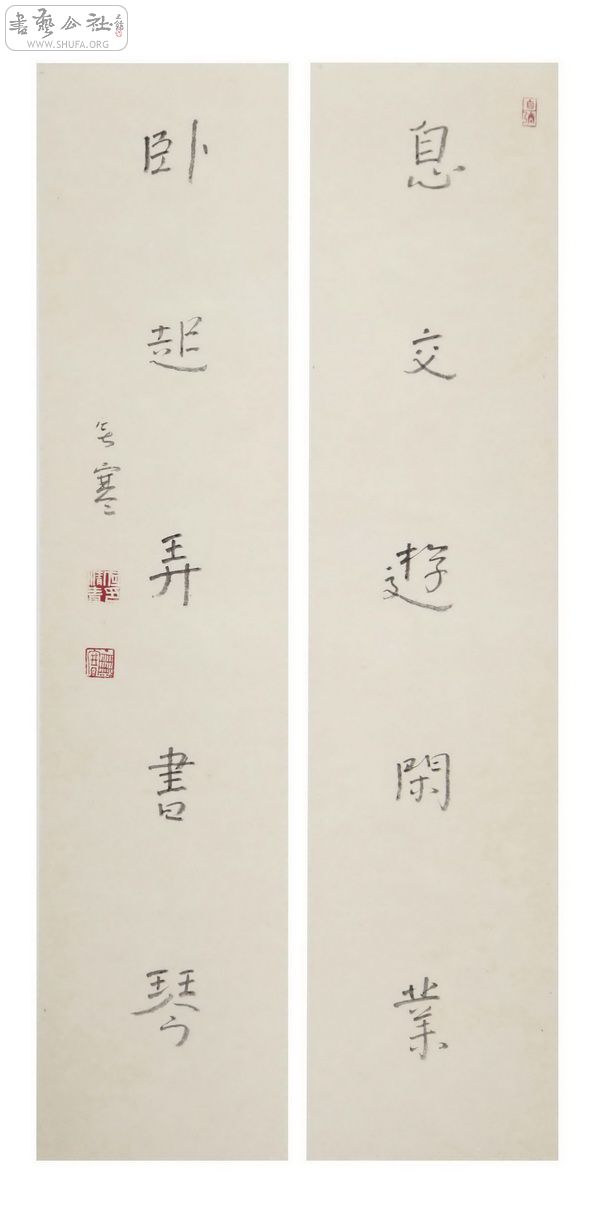 書藝公社
WWW.SHUFA.ORG
息交遊閑業
卧起弄書琴
寒